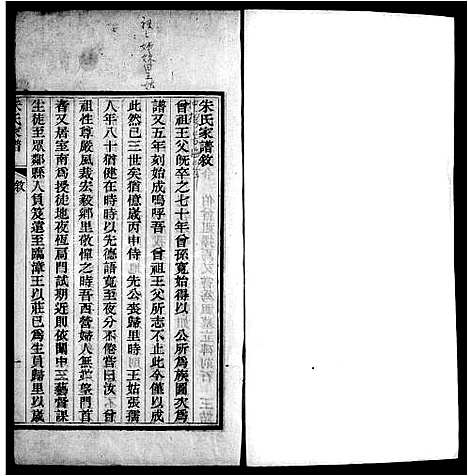 朱氏家譜敘
曾祖王父旣卒之七十年曾孫寬始得以 公所爲族圖次爲
譜又五年刻始成嗚呼吾 曾祖王父所志不止此今僅以成
此然已三世矣猶憶歲丙申侍 先公喪歸里時 王姑張孺
人年八十猶健在時時以先德語寬至夜分不倦嘗曰汝 曾
祖性尊嚴風裁宏毅鄉里敬憚之時吾西營婦人無敢望門首
者又居室南爲授徒地夜恆扃門試期近則依闈中三藝督課
生徒至眾鄰縣人負笈遠至臨漳王以莊已爲生員歸里以歲
朱氏家譜 敘 一